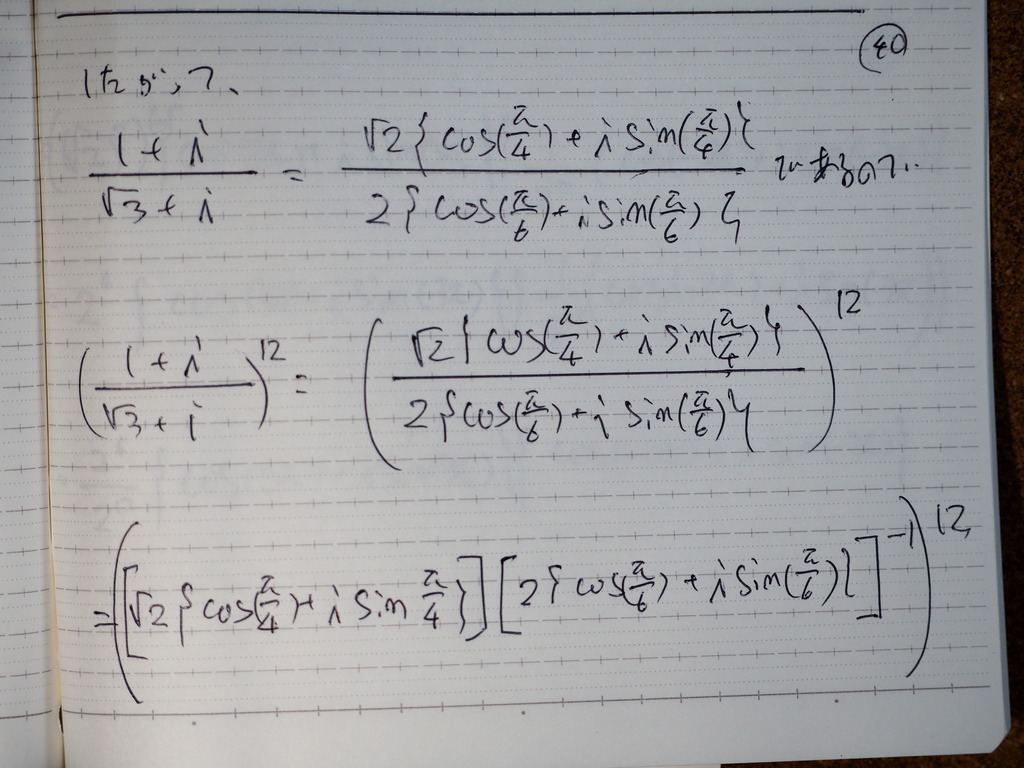 40
したがって、
(1+i)/(√3+i) = √2{cos(π/4)+i sin(π/4)}/2{cos(π/6)+i sin(π/6)} であるので..
((1+i)/(√3+i))^12 = (√2{cos(π/4)+i sin(π/4)}/2{cos(π/6)+i sin(π/6)})^12
=([√2{cos(π/4)+i sin π/4}][2{cos(π/6)+i sin(π/6)}]^-1)^12